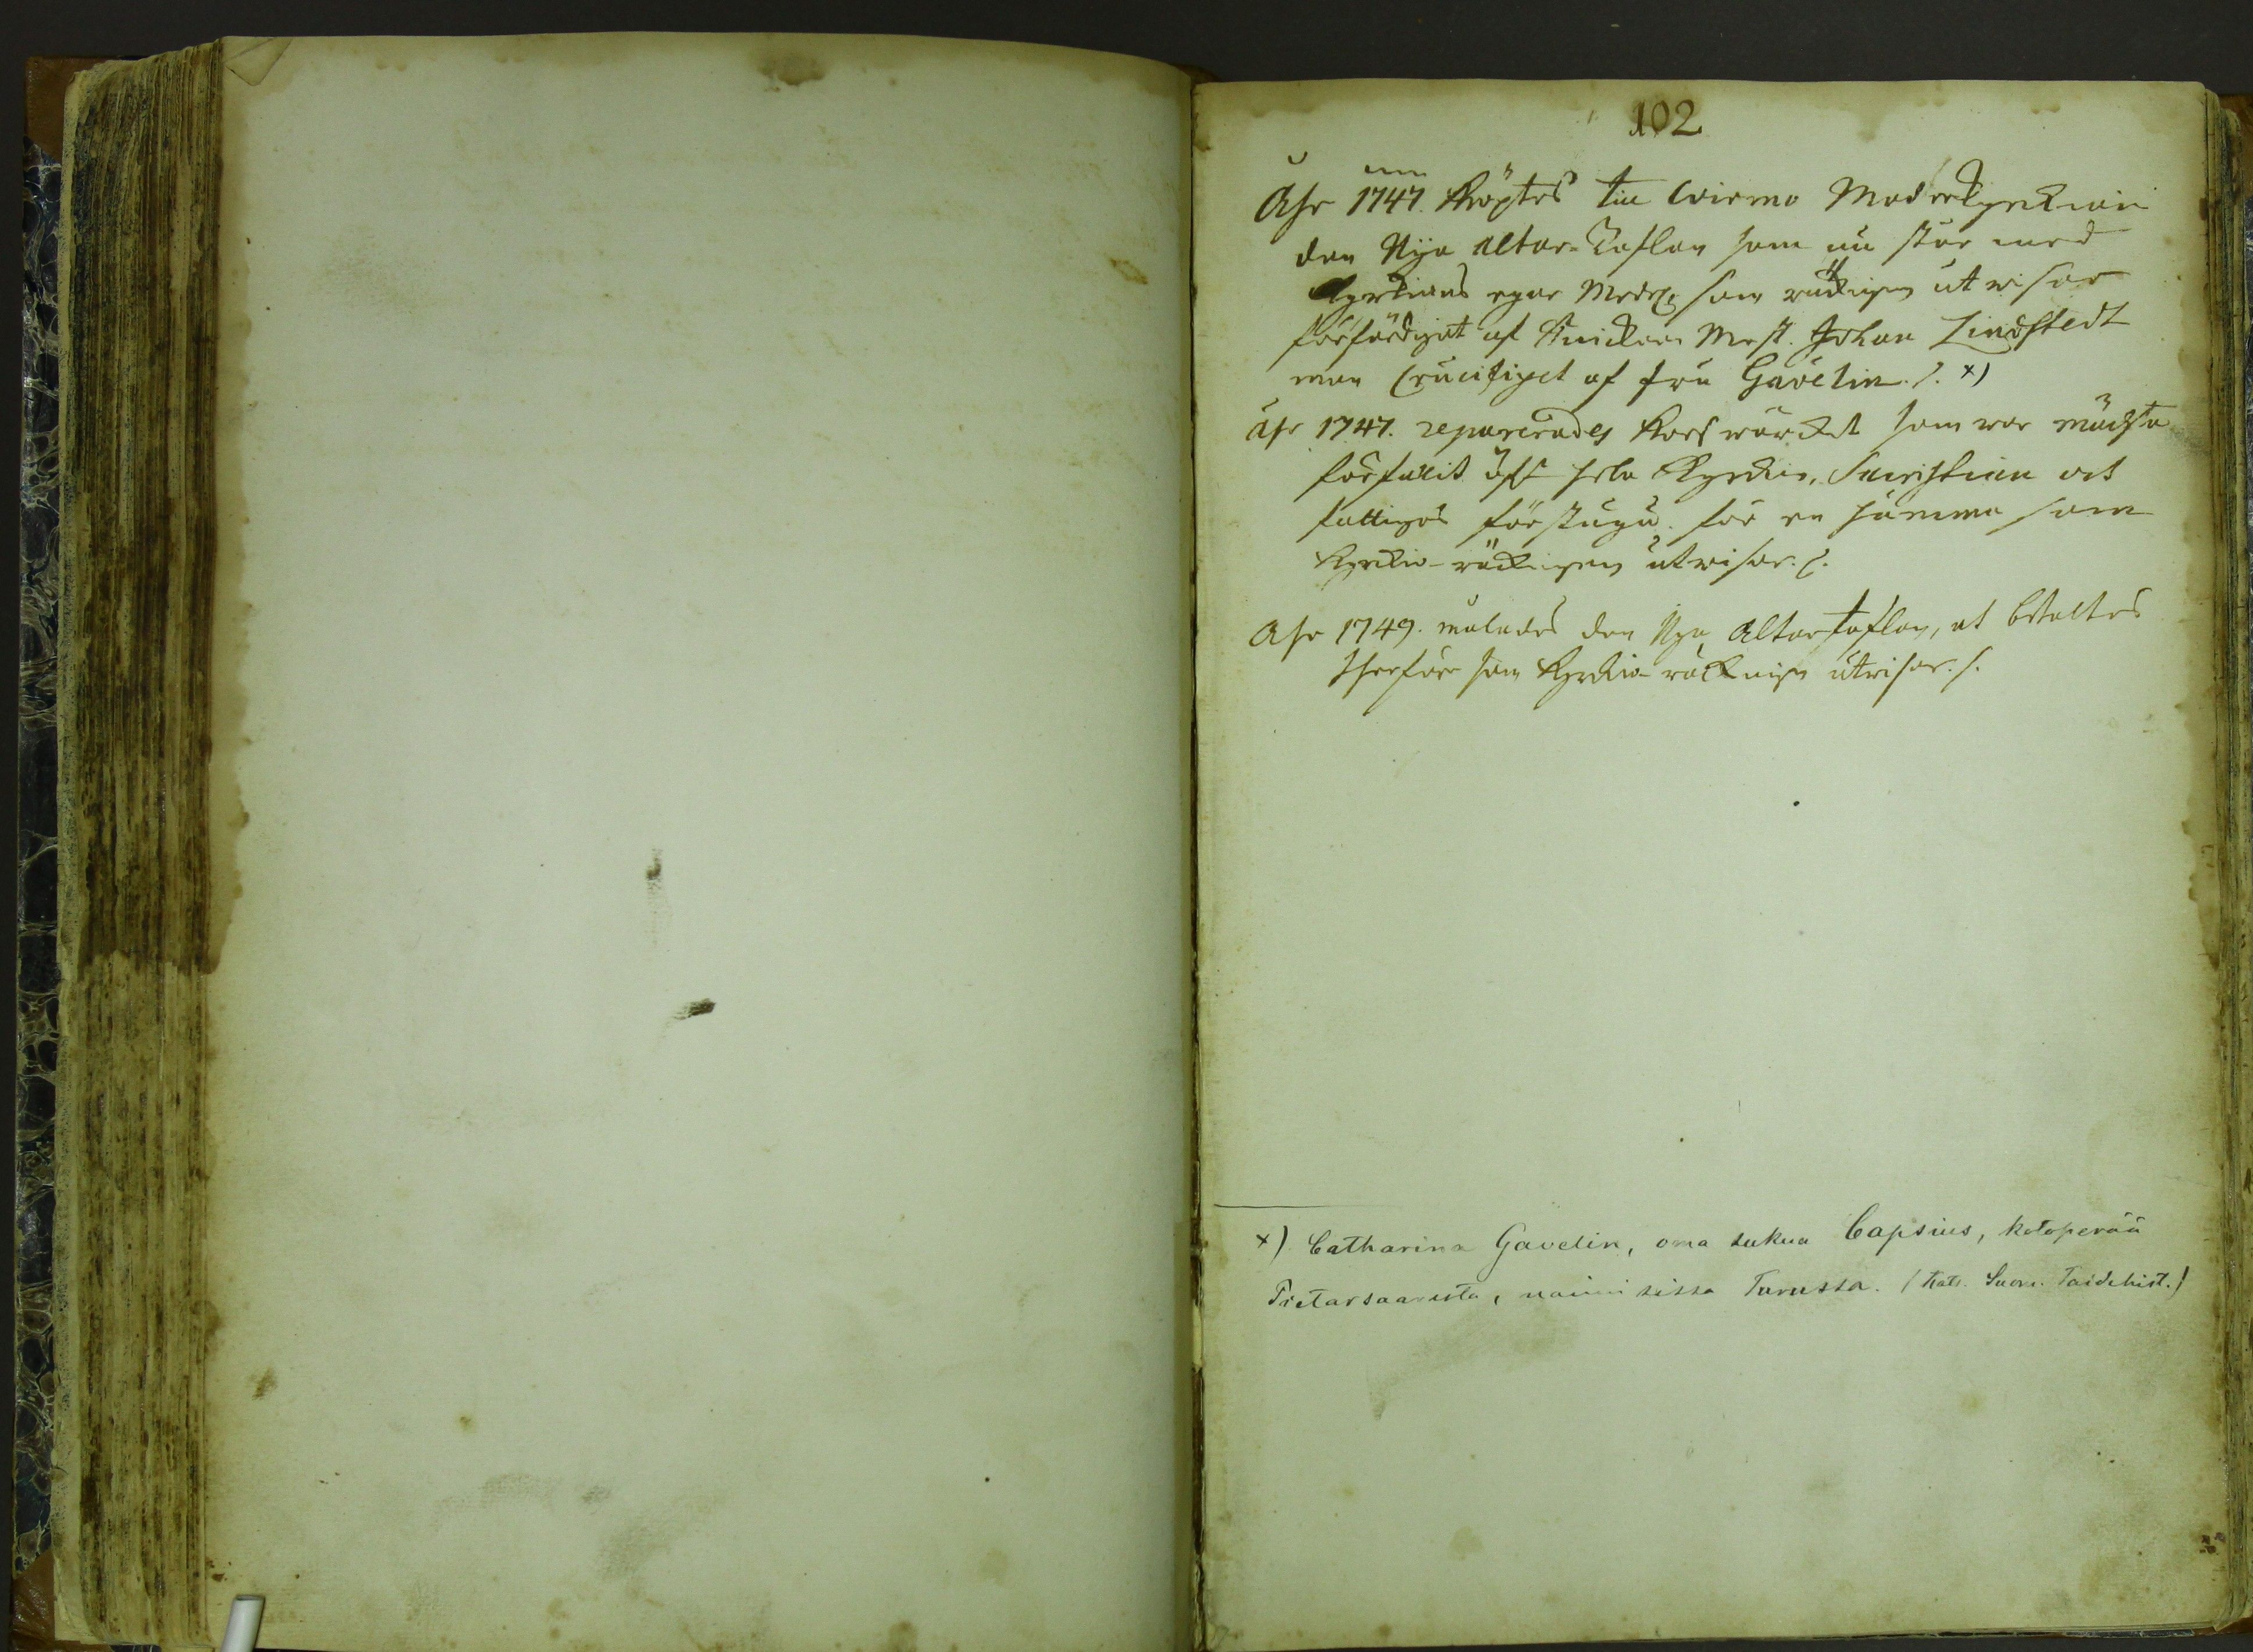 102
Åhr 1747. Kiöptes till Wirmo Moderkyrkian
den Nÿa Altar-Taflan som nu står med
Kyrkians egne Medel, som räkningen utwisar
förfärdigat af Snickare Mest. Johan Lindstedt
men Crucifixet af fru Gavelin. /. x)
åhr 1747. reparerades Korswärcket som war mäckta
förfallit åfwer hela Kyrkian, Sacristian och
fattigas förstugu. för en summa som
Kyrkio-räckningen utwisar. /.
Åhr 1749. målades den Nya Altartaflan, och betaltes
therföre som Kyrkio-räckningen utwisar. /.
x) Catharina Gavelin, omaa sukua Capsius, kotoperää
Pietarsaaresta, naimisissa Turussa. (Kats. Suom. Taidehist.)